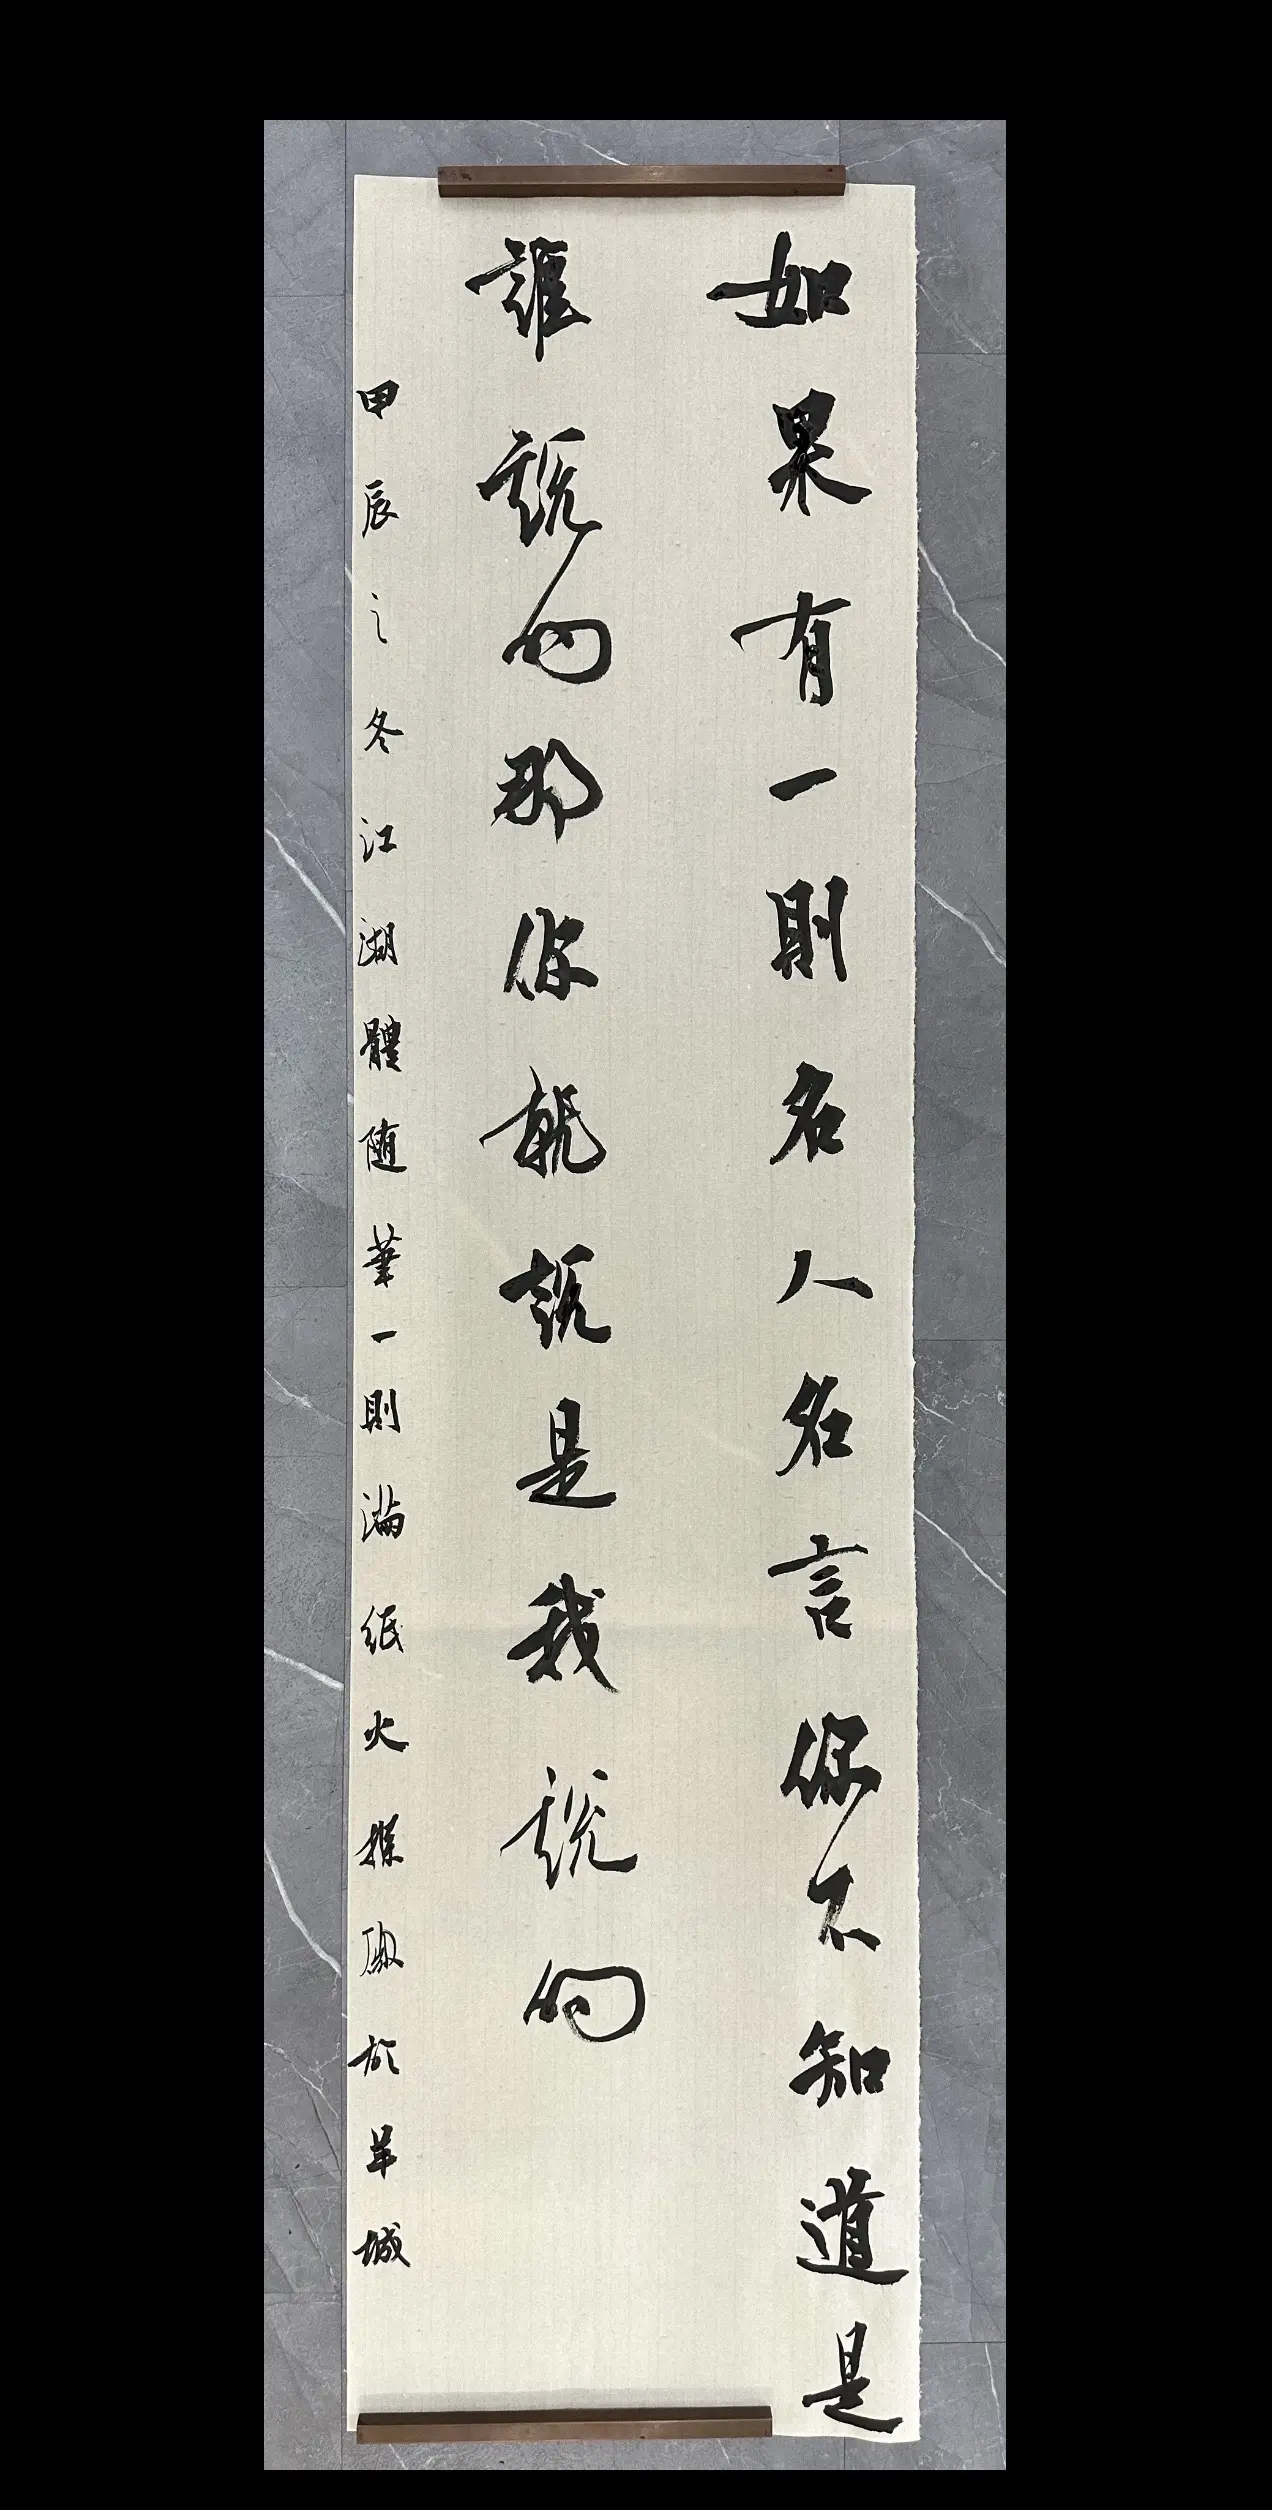 如果有一則名人名言你不知道是
誰說的那你就說是我說的
甲辰之冬江湖體随筆一則滿紙火操於羊城